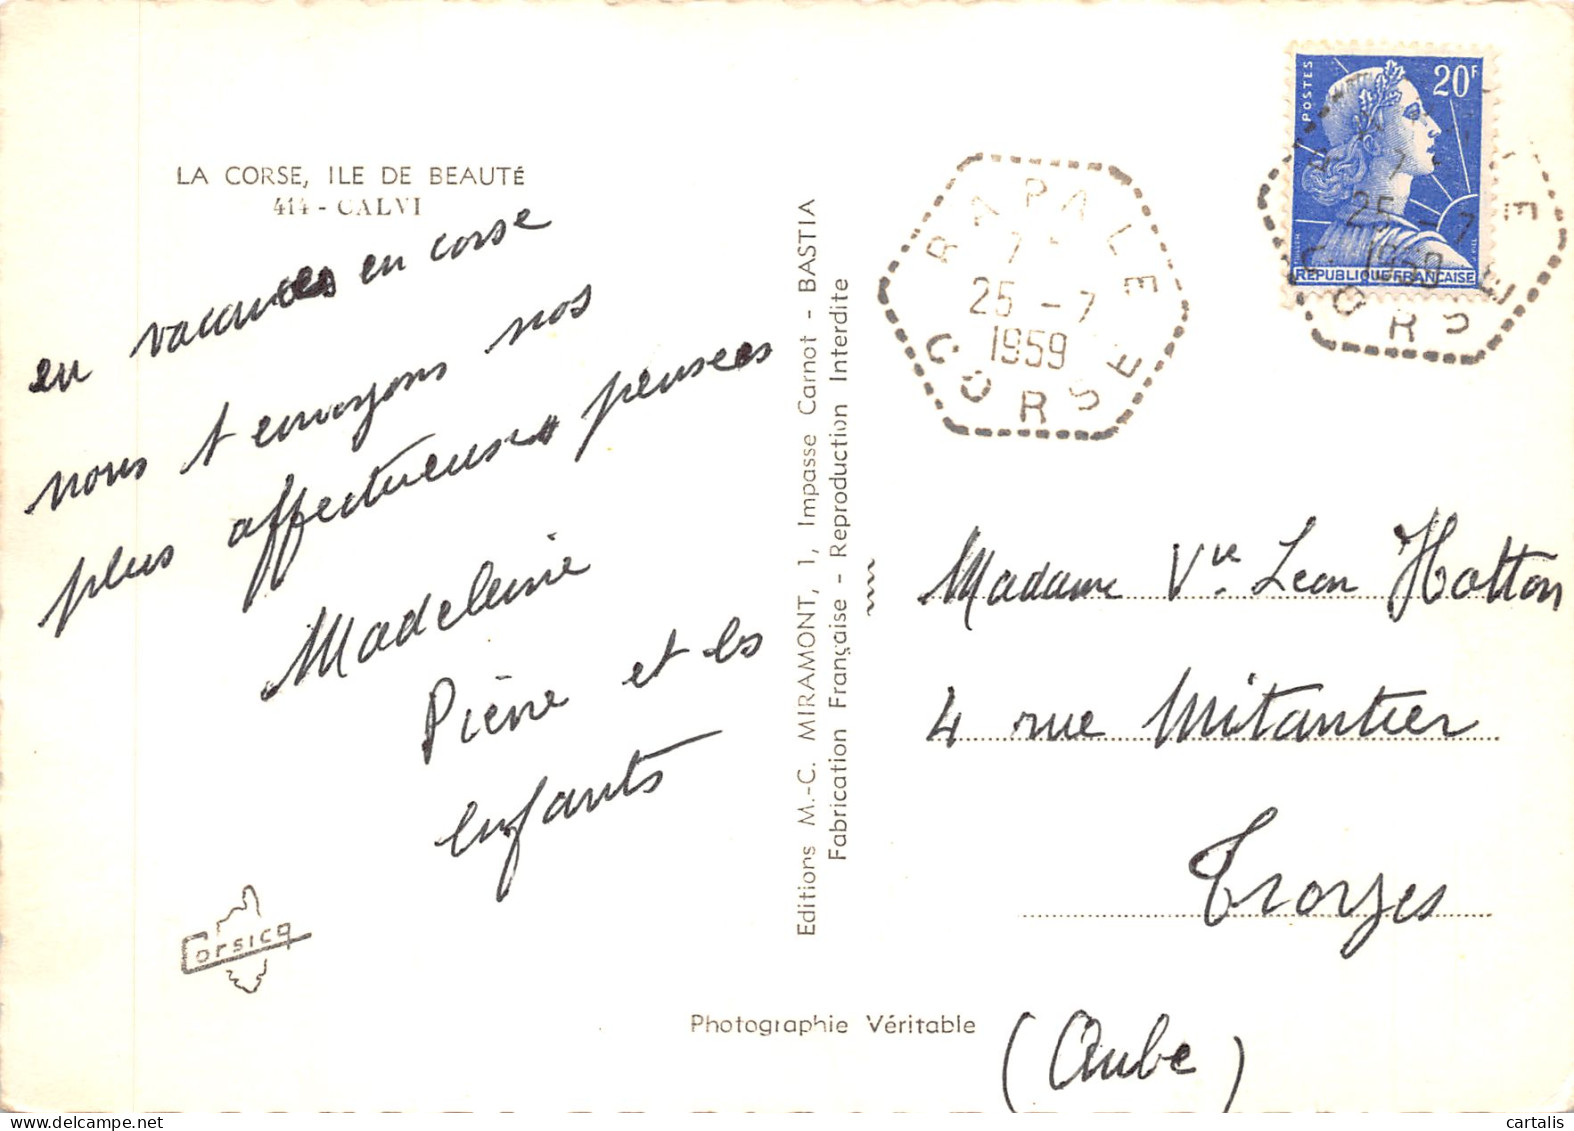 LA CORSE, ILE DE BEAUTÉ
414 - CALVI
en vacances en corse
nous t envoyons nos
plus affectueuses pensees
Madeleine
Pierre et les
enfants
Corsica
Photographie Véritable
Editions M.-C. MIRAMONT, 1, Impasse Carnot - BASTIA
Fabrication Française - Reproduction Interdite
RAPALE
25 - 7
1959
CORSE
POSTES
20F
REPUBLIQUE FRANÇAISE
25 - 7
1959
CORSE
Madame Vve Leon Hotton
4 rue Mitantier
Troyes
(Aube)
cartalis delcampe.net